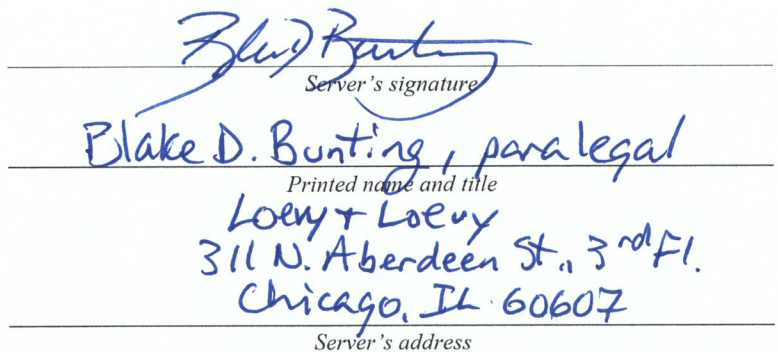 Blake D. Bunting
Server's signature
Blake D. Bunting, paralegal
Printed name and title
Loevy + Loevy
311 N. Aberdeen St., 3rd Fl.
Chicago, IL 60607
Server's address